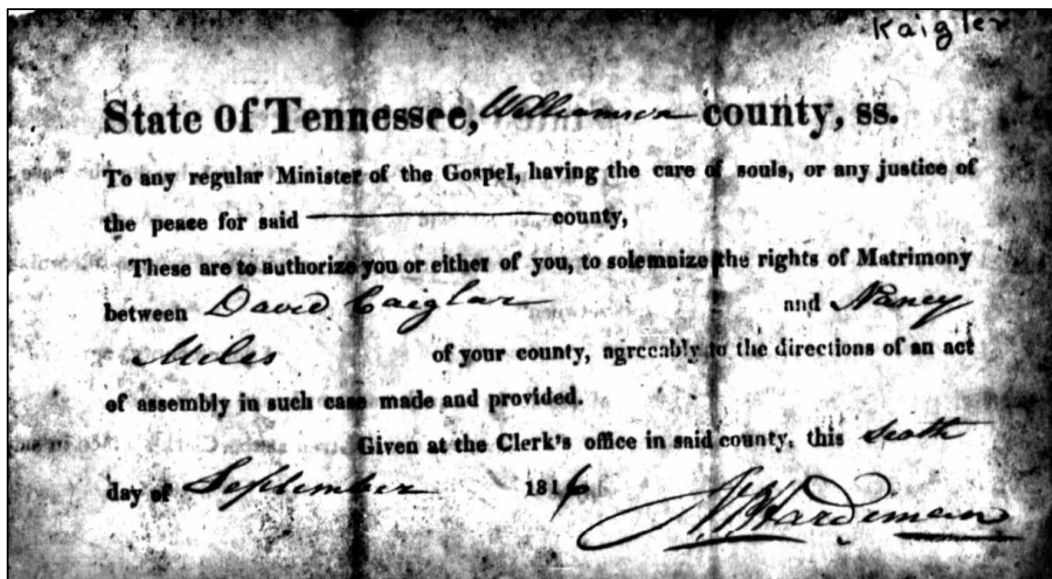 Kaigler
State of Tennessee, Williamson county, ss.
To any regular Minister of the Gospel, having the care of souls, or any justice of
the peace for said county,
These are to authorize you or either of you, to solemnize the rights of Matrimony
between David Caiglar and Nancy
Miles of your county, agreeably to the directions of an act
of assembly in such case made and provided.
Given at the Clerk's office in said county, this
day of September 1816
N P Hardeman